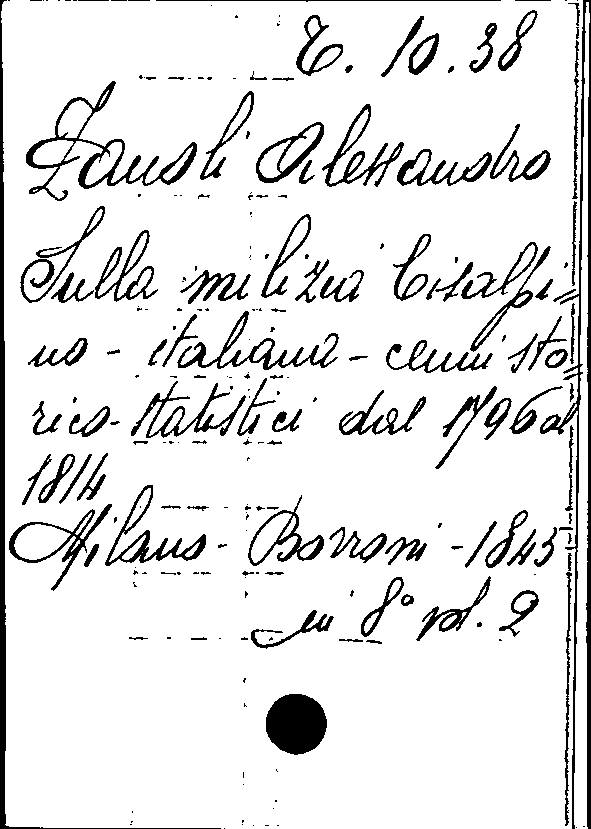 E. 10. 38
Zanoli Alessandro
Sulla milizia Cisalpi=
no - italiana - cenni sto=
rico-statistici dal 1796 al
1814
Milano - Borroni - 1845
in 8° vol. 2